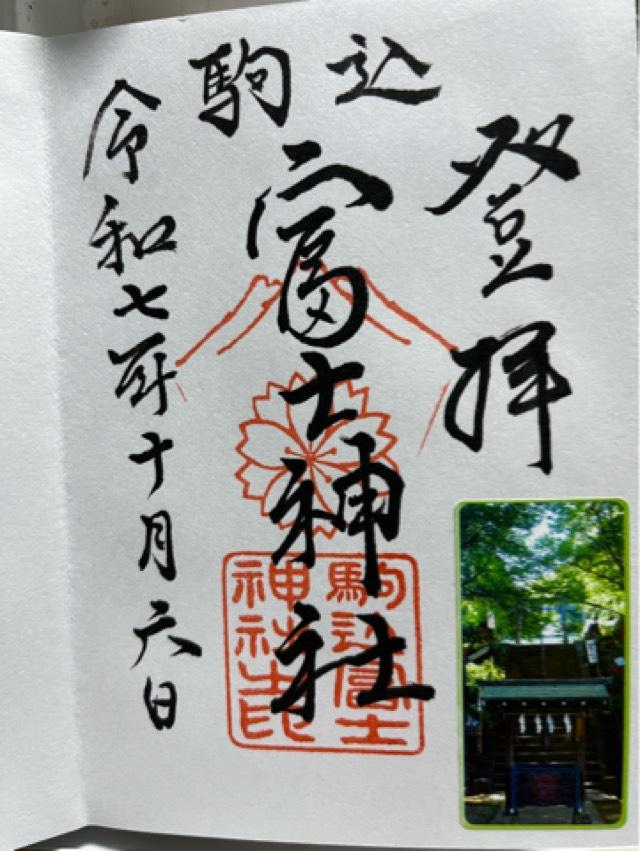 登拝
駒込
富士神社
令和七年十月六日
駒込富士
神社之印